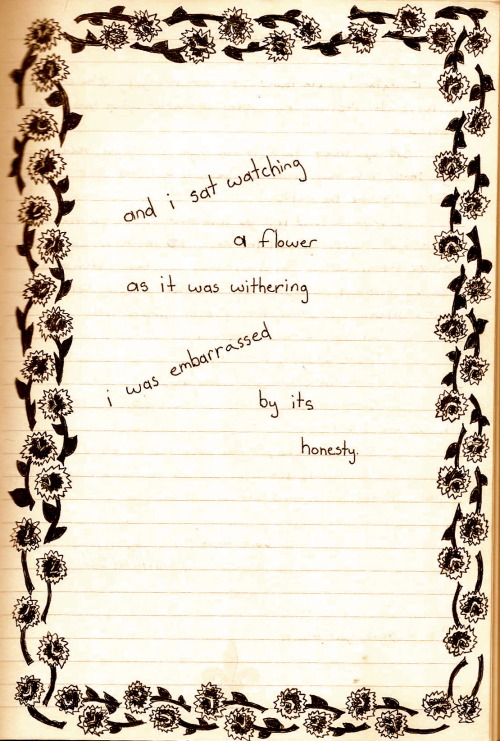 and i sat watching
a flower
as it was withering
i was embarrassed
by its
honesty.